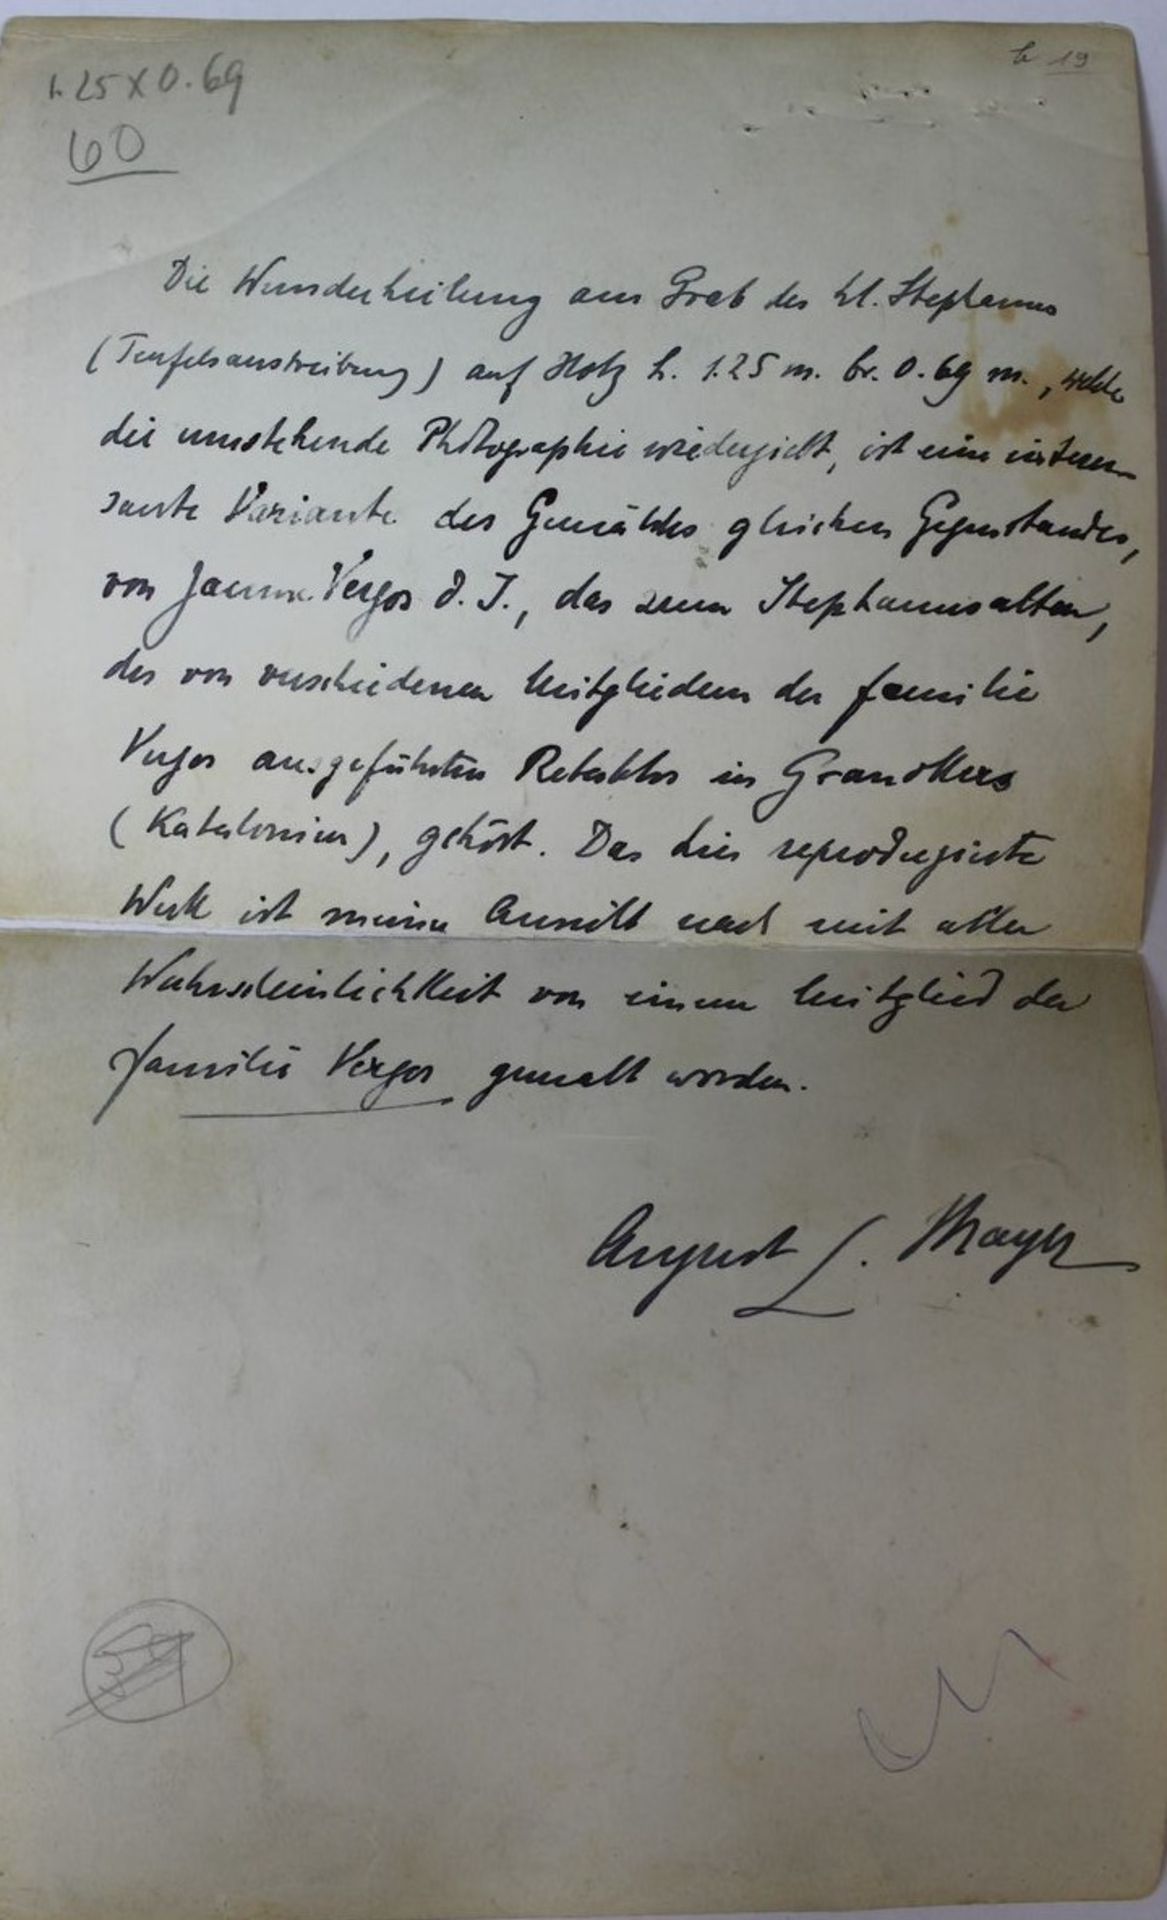 b 19
1.25 X 0.69
60
Die Wunderheilung am Grab des hl. Stephanus
(Teufelsaustreibung) auf Holz h. 1.25 m. br. 0.69 m., welche
die umstehende Photographie wiedergiebt, ist eine interes-
sante Variante des Gemäldes gleichen Gegenstandes,
von Jaume Vergos d. J., das zum Stephanusaltar,
des von verschiedenen Mitgliedern der Familie
Vergos ausgeführten Retablos in Granollers
(Katalonien), gehört. Das hier reproduzierte
Werk ist meiner Ansicht nach mit aller
Wahrscheinlichkeit von einem Mitglied der
Familie Vergos gemalt worden.
August L. Mayer